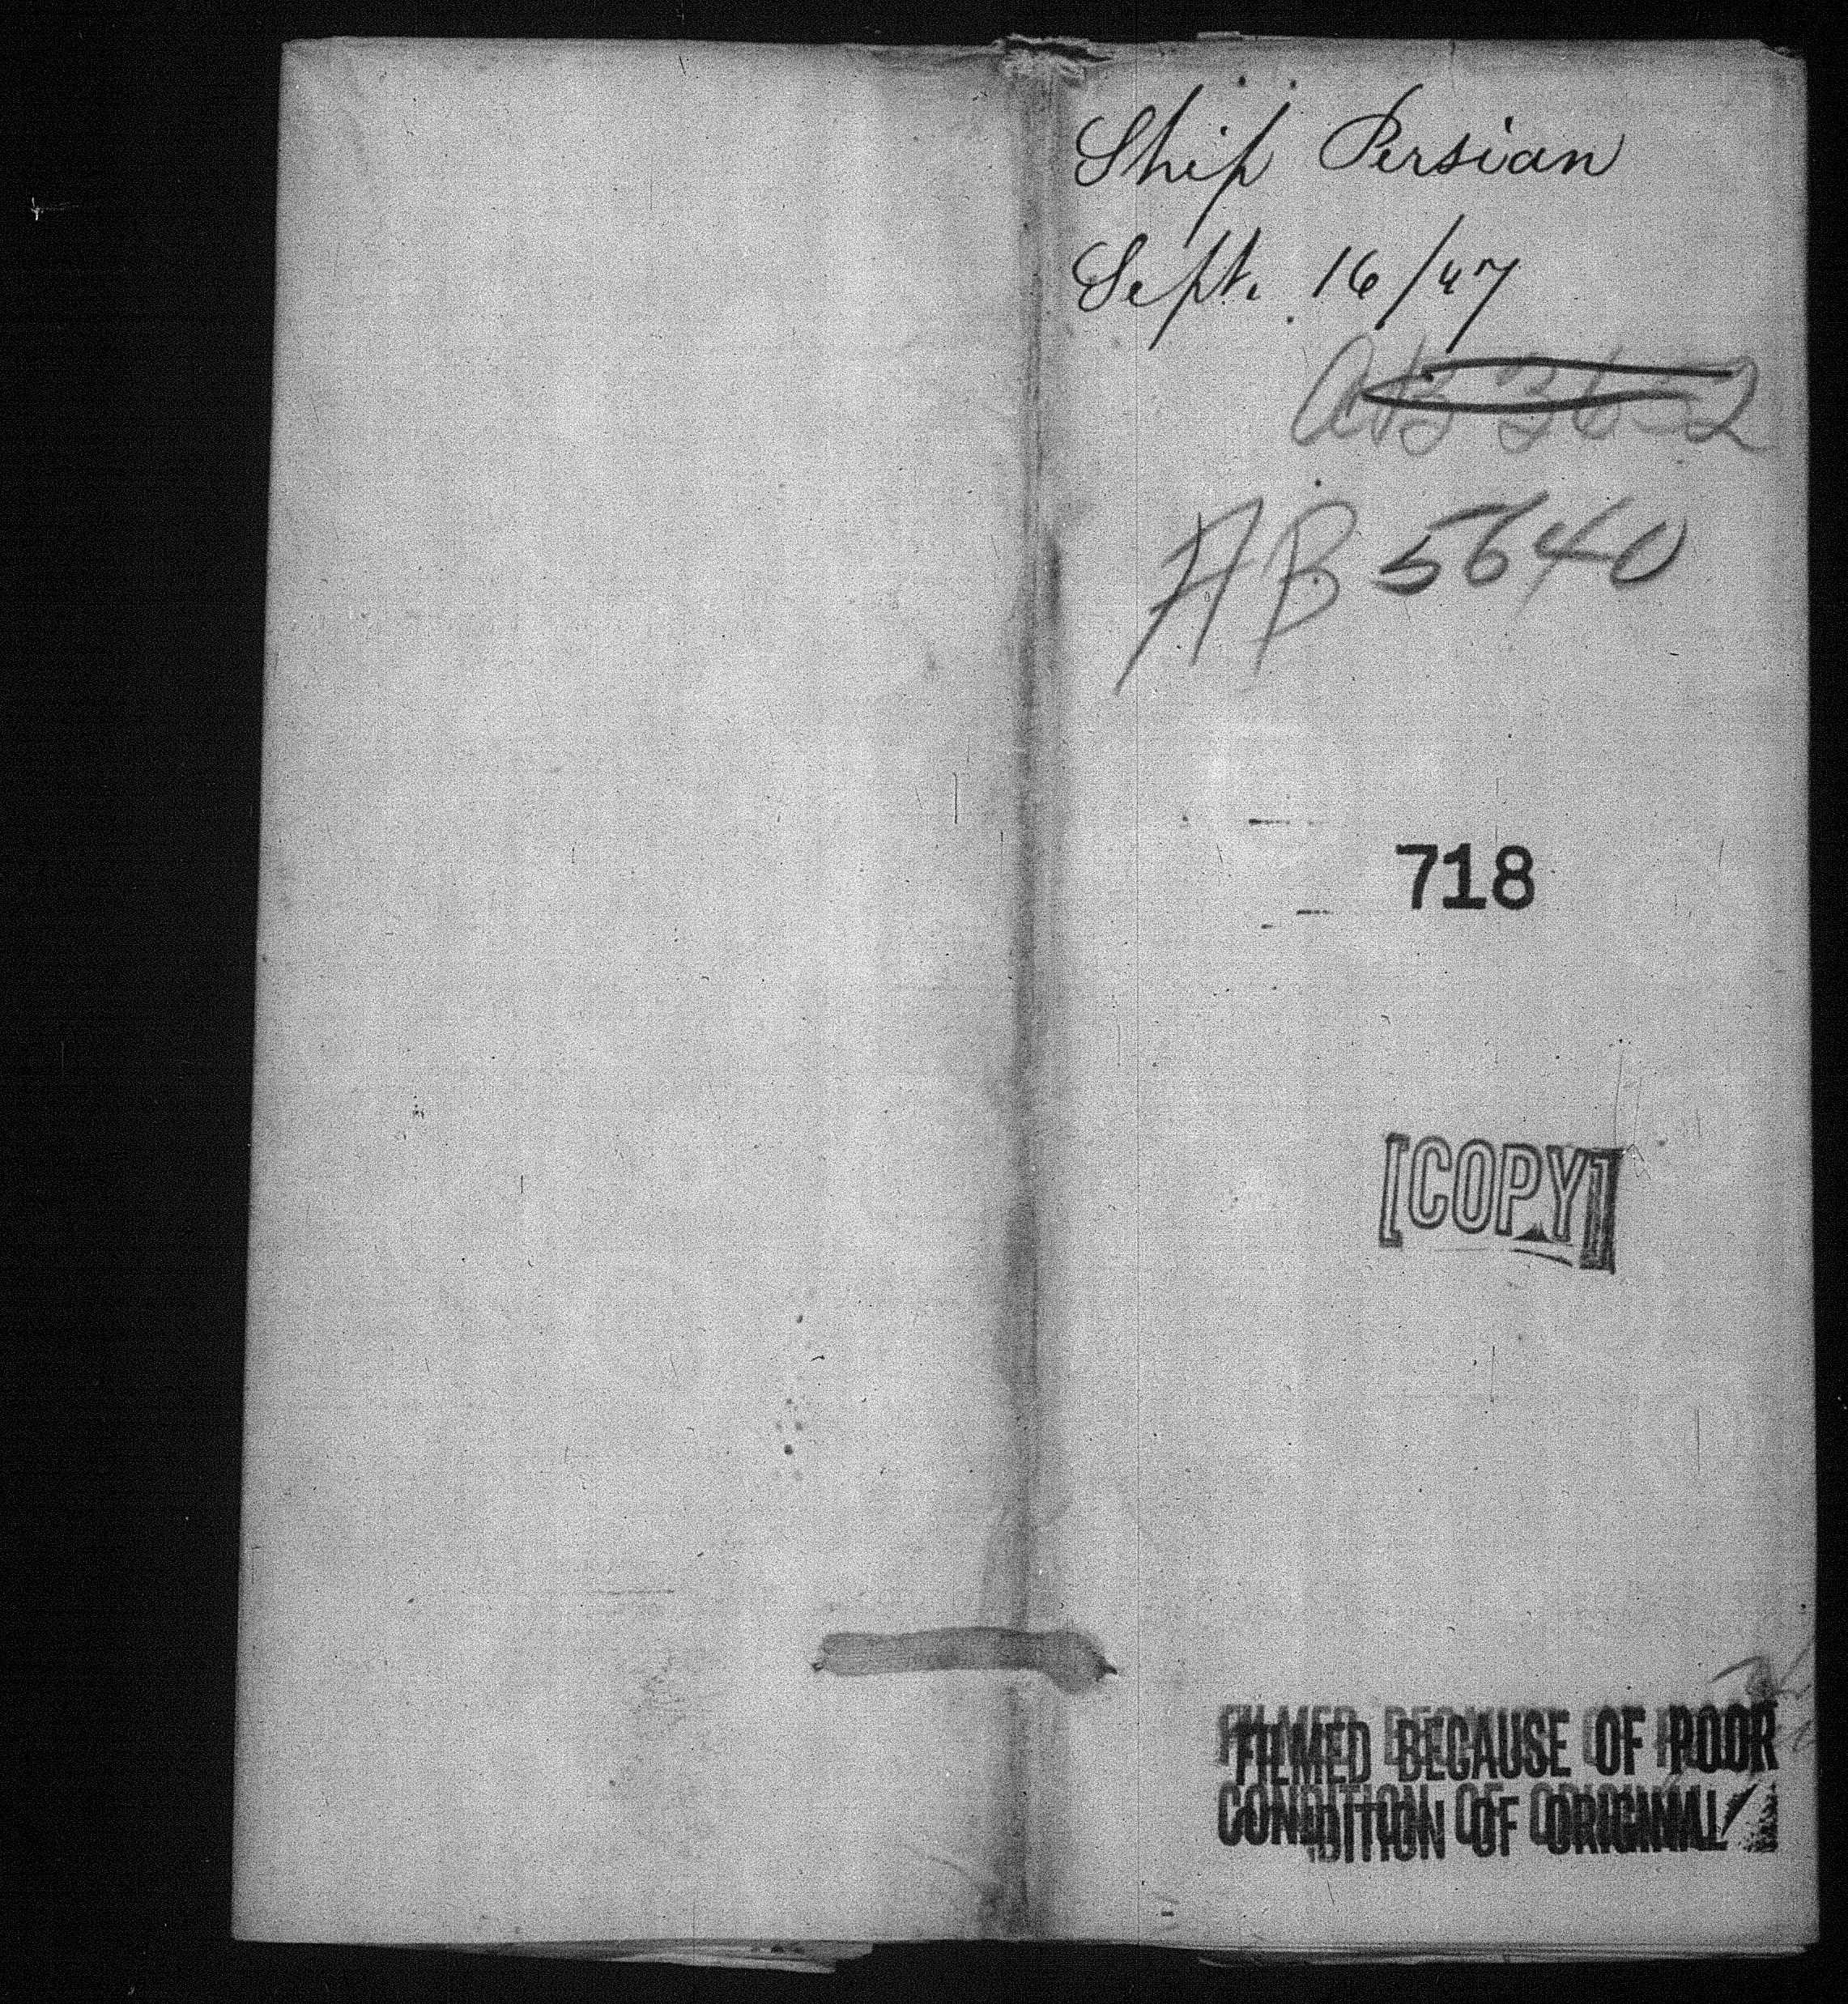 Ship Persian
Sept. 16/47
AB 3652
AB 5640
718
[COPY]
FILMED BECAUSE OF POOR
CONDITION OF ORIGINAL